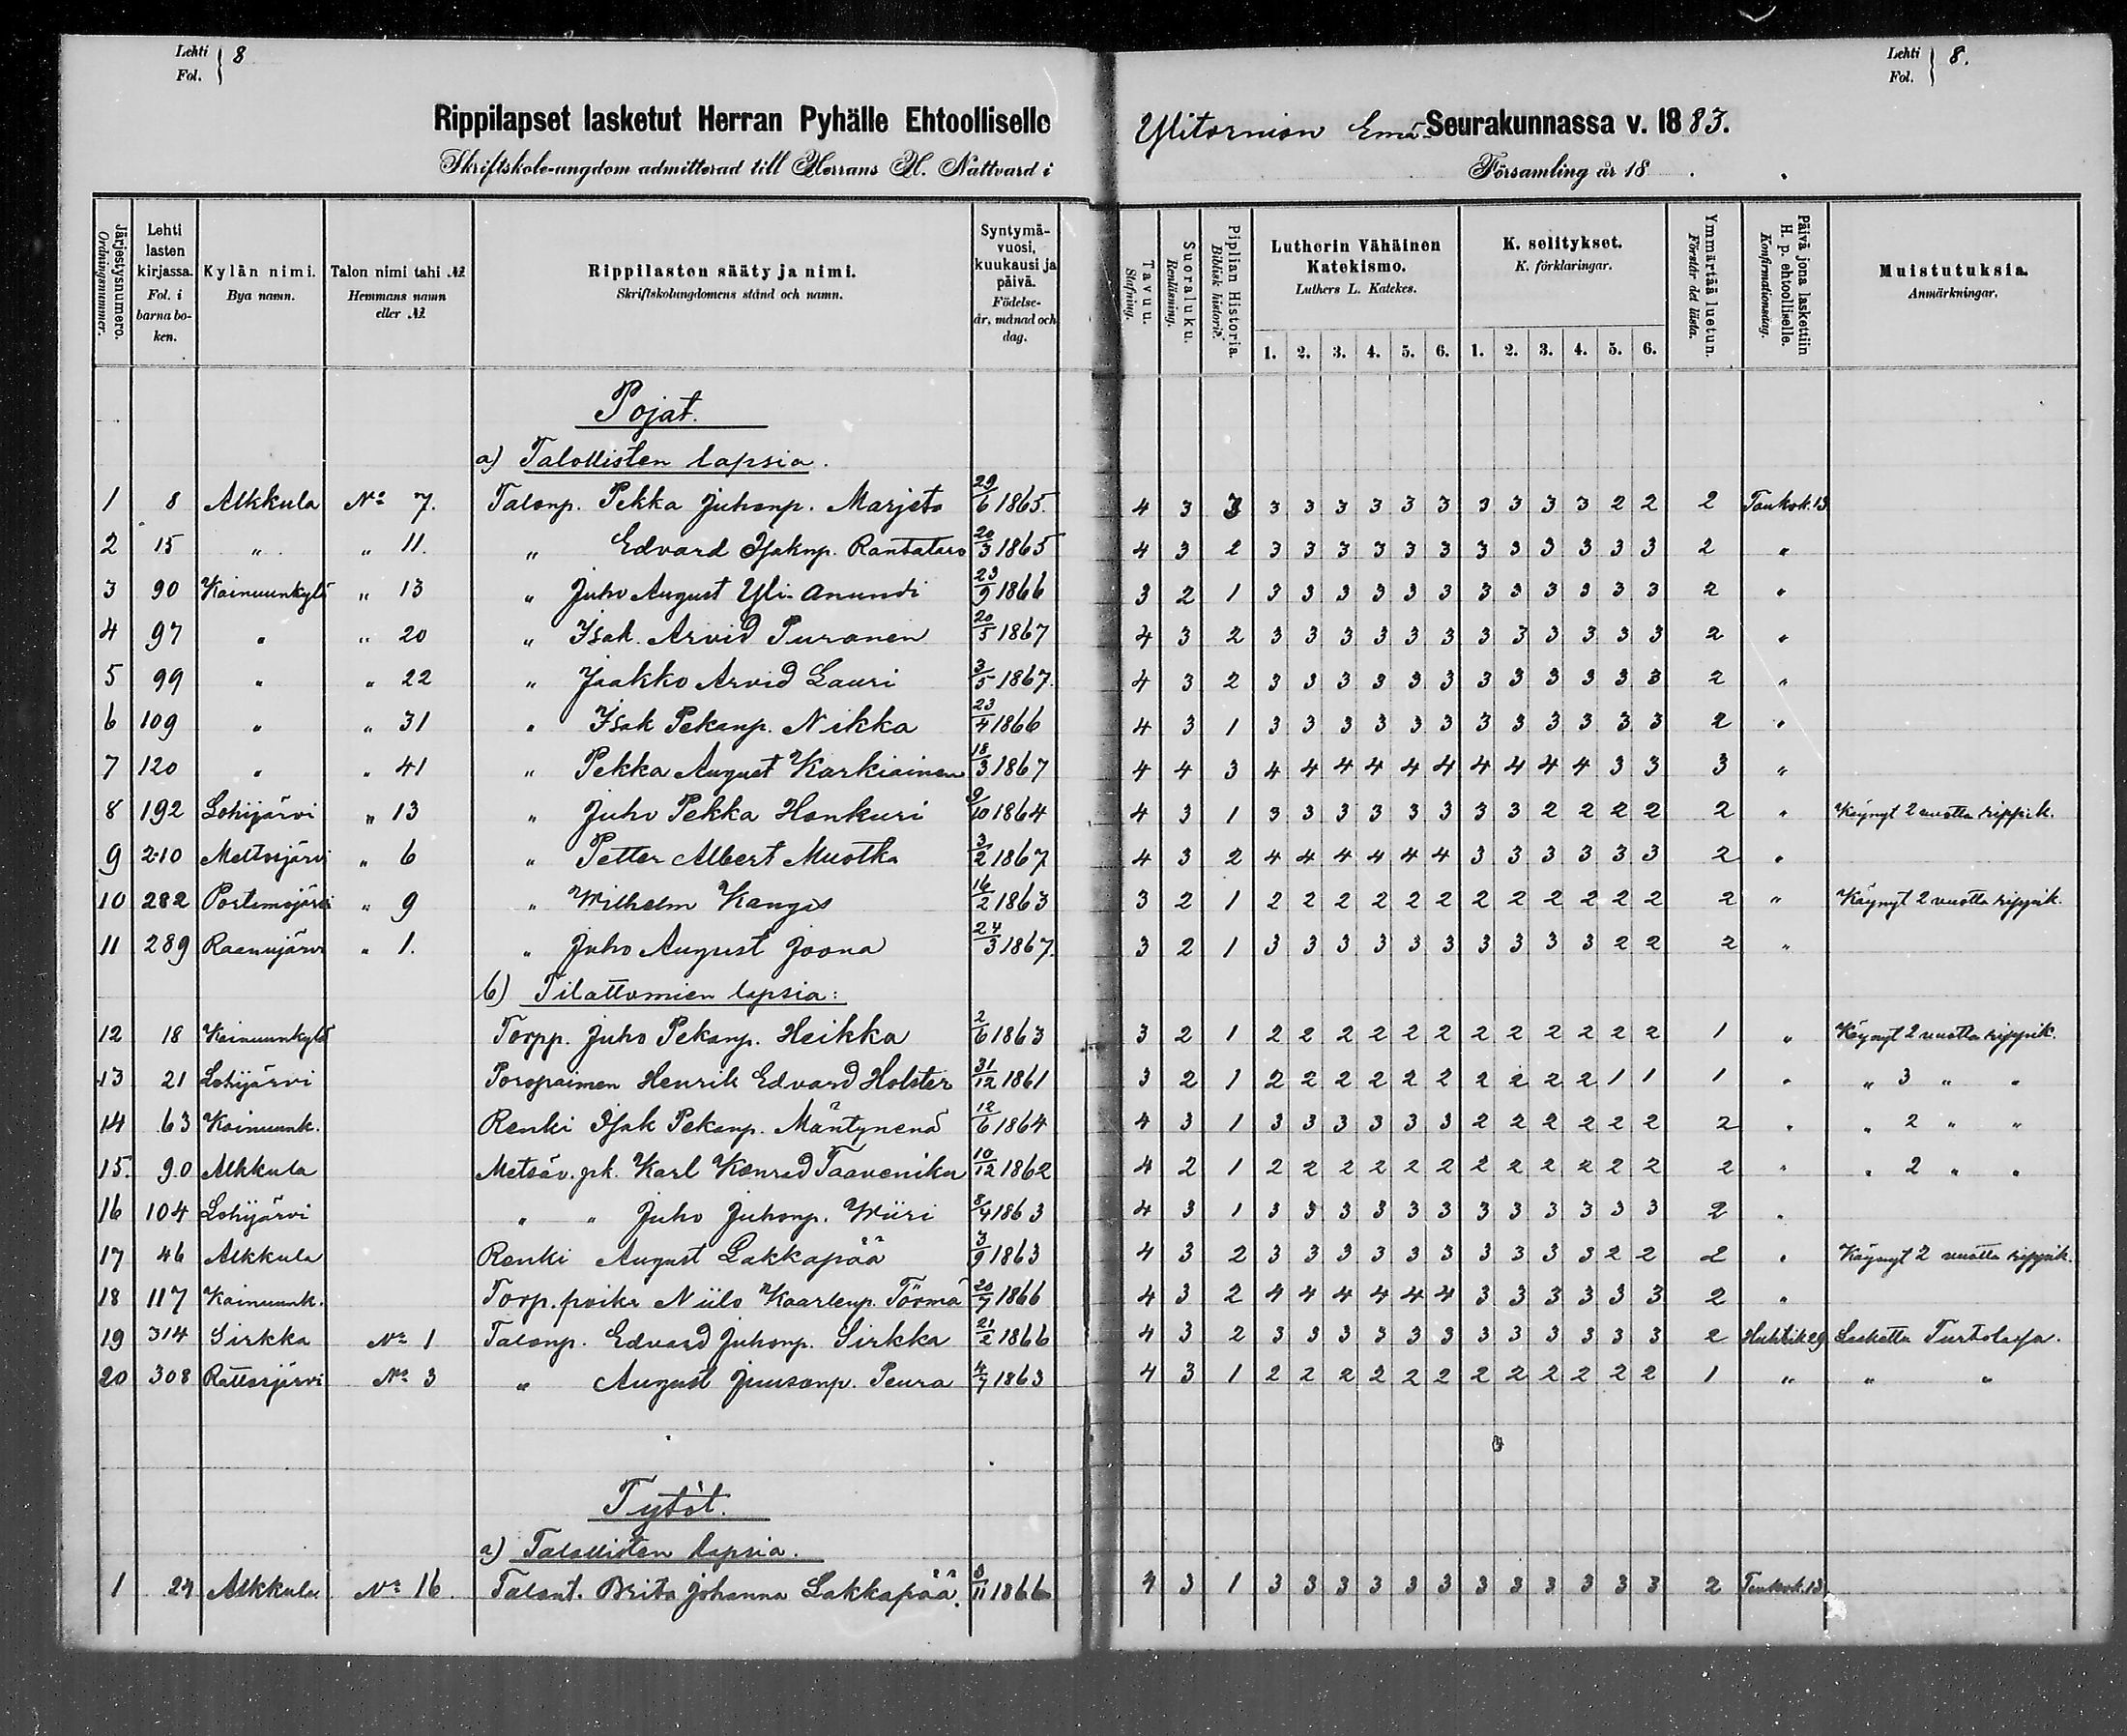 Lehti
Fol. } 8
Lehti
Fol. } 8.
Rippilapset lasketut Herran Pyhälle Ehtoolliselle Ylitornion Emä Seurakunnassa v. 1883.
Skriftskole-ungdom admitterad till Herrans H. Nattvard i Församling år 18 .
Järjestysnumero. Ordningsnummer. | Lehti lasten kirjassa. Fol. i barna boken. | Kylän nimi. Bya namn. | Talon nimi tahi № Hemmans namn eller № | Rippilasten sääty ja nimi. Skriftskolungdomens stånd och namn. | Syntymävuosi, kuukausi ja päivä. Födelseår, månad och dag. | Tavuu. Stafning. | Suoraluku. Renläsning. | Piplian Historia. Biblisk historie. | Lutherin Vähäinen Katekismo. Luthers L. Katekes. 1. 2. 3. 4. 5. 6. | K. selitykset. K. förklaringar. 1. 2. 3. 4. 5. 6. | Ymmärtää luetun. Förstår det lästa. | Päivä jona laskettiin H. p. ehtoolliselle. Konfirmationsdag. | Muistutuksia. Anmärkningar.
Pojat.
a) Talollisten lapsia.
1 8 Alkkula No 7. Talonp. Pekka Juhonp. Marjeta 29/6 1865. 4 3 3 3 3 3 3 3 3 3 3 3 3 2 2 2 Toukok. 13
2 15 " " 11. " Edvard Isaknp. Rantataro 20/3 1865 4 3 2 3 3 3 3 3 3 3 3 3 3 3 3 2 "
3 90 Kainuunkylä " 13 " Juho August Yli-Anundi 23/9 1866 3 2 1 3 3 3 3 3 3 3 3 3 3 3 3 2 "
4 97 " " 20 " Isak Arvid Puranen 20/5 1867 4 3 2 3 3 3 3 3 3 3 3 3 3 3 3 2 "
5 99 " " 22 " Jaakko Arvid Lauri 3/5 1867. 4 3 2 3 3 3 3 3 3 3 3 3 3 3 3 2 "
6 109 " " 31 " Isak Pekanp. Nikka 23/4 1866 4 3 1 3 3 3 3 3 3 3 3 3 3 3 3 2 "
7 120 " " 41 " Pekka August Karkiainen 18/3 1867 4 4 3 4 4 4 4 4 4 4 4 4 4 3 3 3 "
8 192 Lohijärvi " 13 " Juho Pekka Honkuri 9/10 1864 4 3 1 3 3 3 3 3 3 3 3 2 2 2 2 2 " Käynyt 2 vuotta rippik.
9 210 Meltosjärvi " 6 " Petter Albert Muotka 3/2 1867 4 3 2 4 4 4 4 4 4 3 3 3 3 3 3 2 "
10 282 Portimojärvi " 9 " Wilhelm Kangas 16/2 1863 3 2 1 2 2 2 2 2 2 2 2 2 2 2 2 2 " Käynyt 2 vuotta rippik.
11 289 Raanujärvi " 1. " Juho August Joona 24/3 1867. 3 2 1 3 3 3 3 3 3 3 3 3 3 2 2 2 "
b) Tilattomien lapsia:
12 18 Kainuunkylä Torpp. Juho Pekanp. Heikka 2/6 1863 3 2 1 2 2 2 2 2 2 2 2 2 2 2 2 1 " Käynyt 2 vuotta rippik.
13 21 Lohijärvi Poropaimen Henrik Edvard Holster 31/12 1861 3 2 1 2 2 2 2 2 2 2 2 2 2 1 1 1 " " 3 " "
14 63 Kainuunk. Renki Isak Pekanp. Mäntynenä 12/6 1864 4 3 1 3 3 3 3 3 3 2 2 2 2 2 2 2 " " 2 " "
15. 90 Alkkula Metsäv. pk. Karl Konrad Taaveniku 10/12 1862 4 2 1 2 2 2 2 2 2 2 2 2 2 2 2 2 " " 2 " "
16 104 Lohijärvi " " Juho Juhonp. Wiiri 8/4 1863 4 3 1 3 3 3 3 3 3 3 3 3 3 3 3 2 "
17 46 Alkkula Renki August Lakkapää 3/9 1863 4 3 2 3 3 3 3 3 3 3 3 3 3 2 2 2 " Käynyt 2 vuotta rippik.
18 117 Kainuunk. Torp. poika Niilo Kaarlenp. Törmä 20/7 1866 4 3 2 4 4 4 4 4 4 3 3 3 3 3 3 2 "
19 314 Sirkka No 1 Talonp. Edvard Juhonp. Sirkka 21/2 1866 4 3 2 3 3 3 3 3 3 3 3 3 3 3 3 2 Huhtik 29 Laskettu Turtolassa.
20 308 Rattosjärvi No 3 " August Juusonp. Peura 4/7 1863 4 3 1 2 2 2 2 2 2 2 2 2 2 2 2 1 " " "
Tytöt.
a) Talollisten lapsia.
1 24 Alkkula No 16 Talont. Brita Johanna Lakkapää. 8/11 1866 4 3 1 3 3 3 3 3 3 3 3 3 3 3 3 2 Toukok. 13